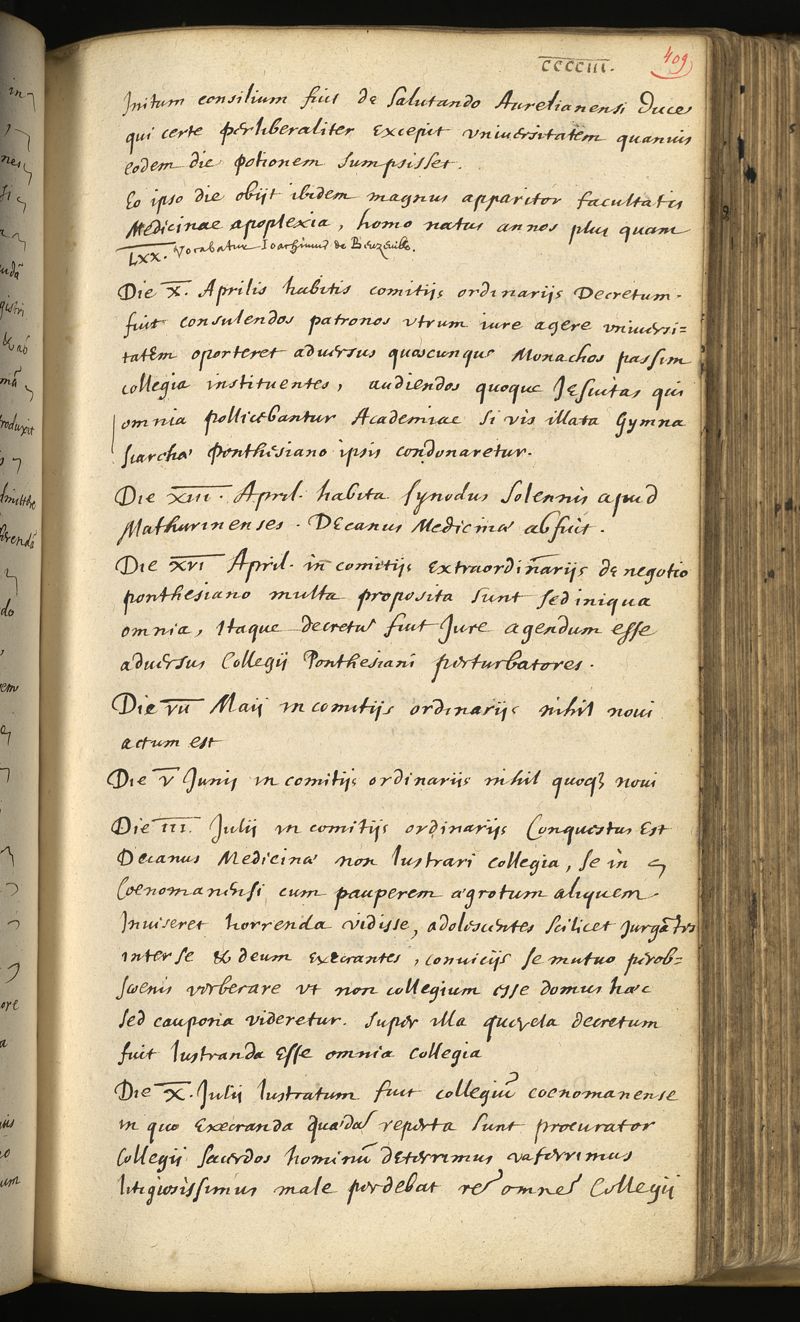 CCCCIII. 409
Initum consilium fuit de salutando Aurelianensi Duce
qui certe perliberaliter excepit vniuersitatem quanuis
eodem die potionem sumpsisset.
Eo ipso die obijt ibidem magnus apparitor facultatis
Medicinae apoplexia, homo natus annos plus quam
LXX. Vocabatur Joachimus de Beuzeuile.
Die X. Aprilis habitis comitijs ordinarijs Decretum
fuit consulendos patronos vtrum iure agere vniuersi=
tatem oporteret aduersus quoscunque Monachos passim
collegia instituentes, audiendos quoque Jesuitas qui
omnia pollicebantur Academiae si vis illata Gymna
siarchae Ponthesiano ipsis condonaretur.
Die XIII. April. habita synodus solennis apud
Mathurinenses. Decanus Medicinae abfuit.
Die XVI April. in comitijs extraordinarijs de negotio
ponthesiano multa proposita sunt sed iniqua
omnia, Itaque decretū fuit Jure agendum esse
aduersus Collegij Ponthesiani perturbatores.
Die VII Maij in comitijs ordinarijs nihil noui
actum est
Die V Junij in comitijs ordinarijs nihil quoq3 noui
Die III. Julij in comitijs ordinarijs Conquestus est
Decanus Medicinae non lustrari collegia, se in
Coenomanensi cum pauperem aegrotum aliquem
Inuiseret horrenda vidisse, adolescentes scilicet jurgātes
inter se & deum execrantes, conuicijs se mutuo perob=
scoenis verberare vt non collegium esse domus haec
sed caupona videretur. super illa querela decretum
fuit lustranda esse omnia collegia
Die X. Julij lustratum fuit collegiū coenomanense
in quo execranda quaedā reperta sunt procurator
Collegij sacerdos hominū deterrimus vaferrimus
litigiosissimus male perdebat res omnes Collegij